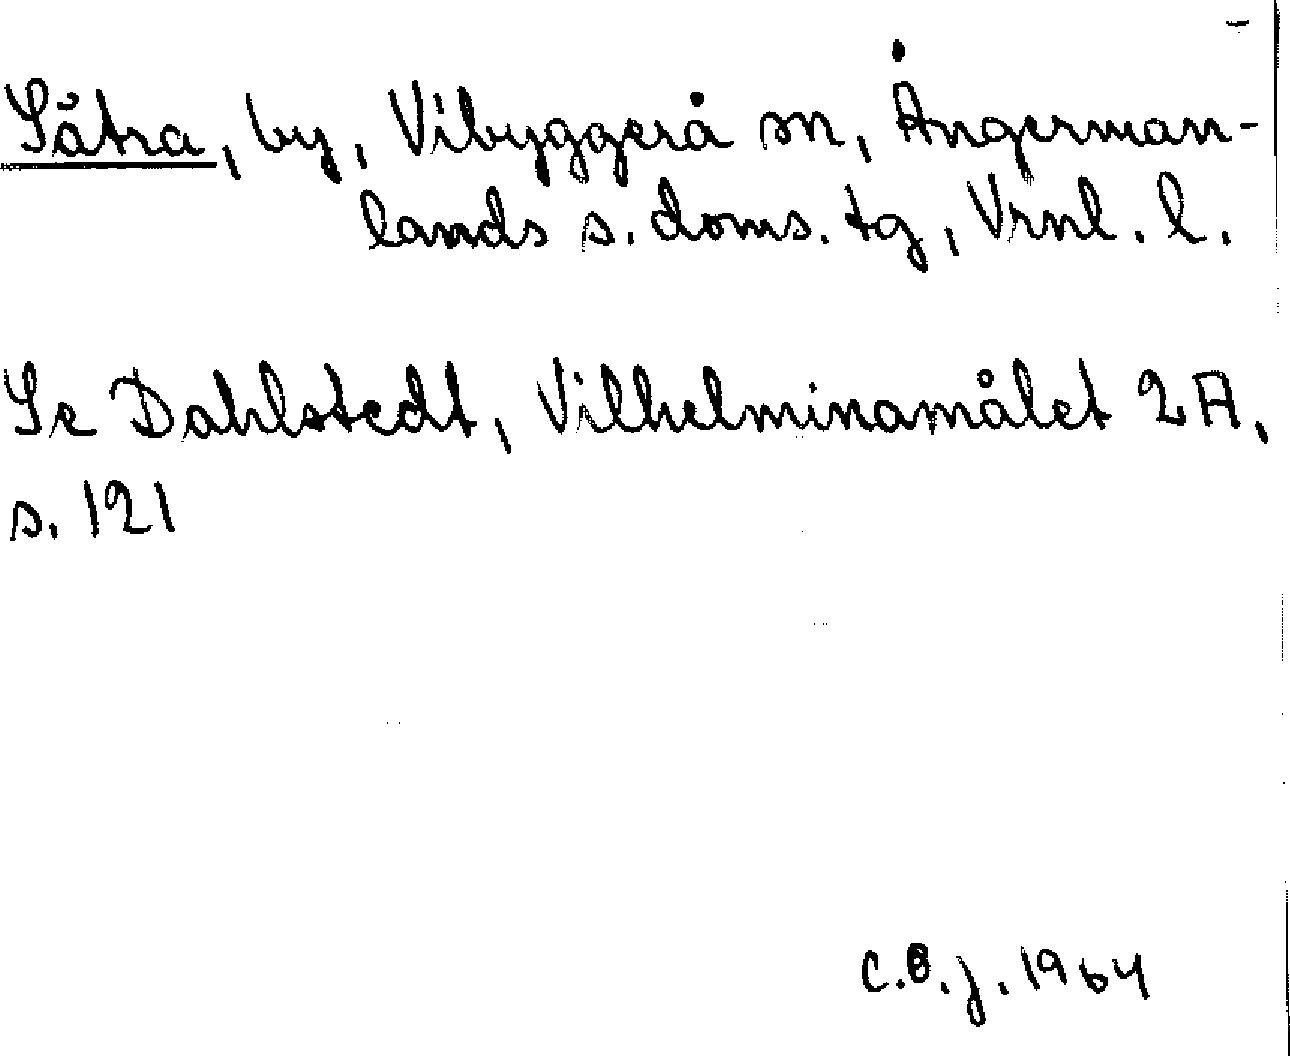 Såtra, by, Vibyggerå sn, Ångerman-
lands s. doms. tg, Vrnl. l.
Se Dahlstedt, Vilhelminamålet 2A,
s. 121
C.B.J. 1964